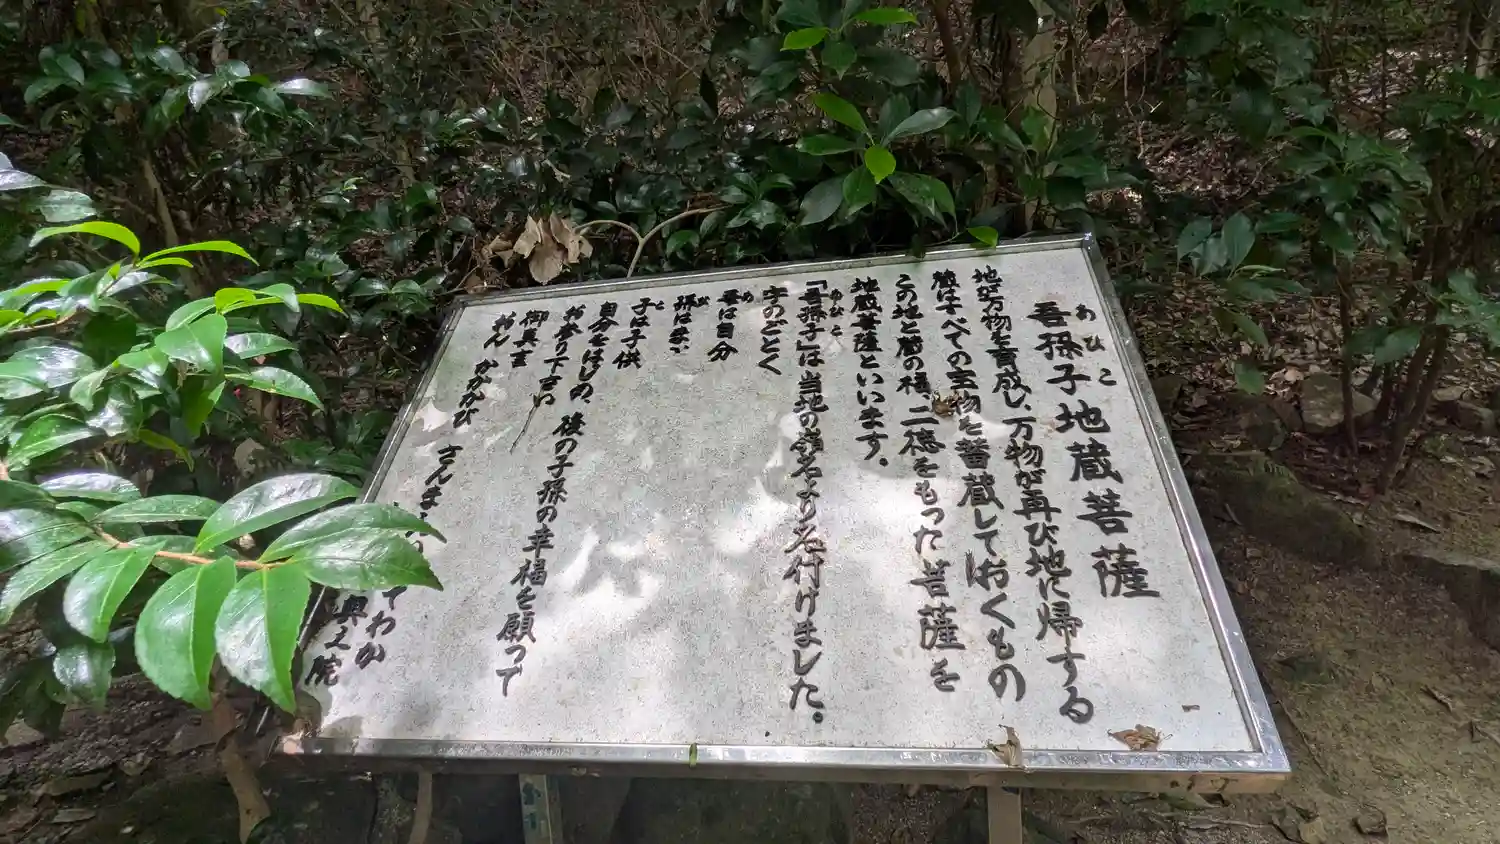 吾孫子地蔵菩薩
あひこ
地は万物を育成し、万物が再び地に帰する
蔵はすべての宝物を蓄蔵しておくもの
この地と蔵の様、二徳をもった菩薩を
地蔵菩薩といいます。
「吾孫子」は当地の嶺名より名付けました。
あひこ
字のごとく
吾は自分
あ
孫はまご
ひ
子は子供
こ
自分をはじめ、後の子孫の幸福を願って
お参り下さい
御真言
おん かかかび さんま
てわか
奥之院